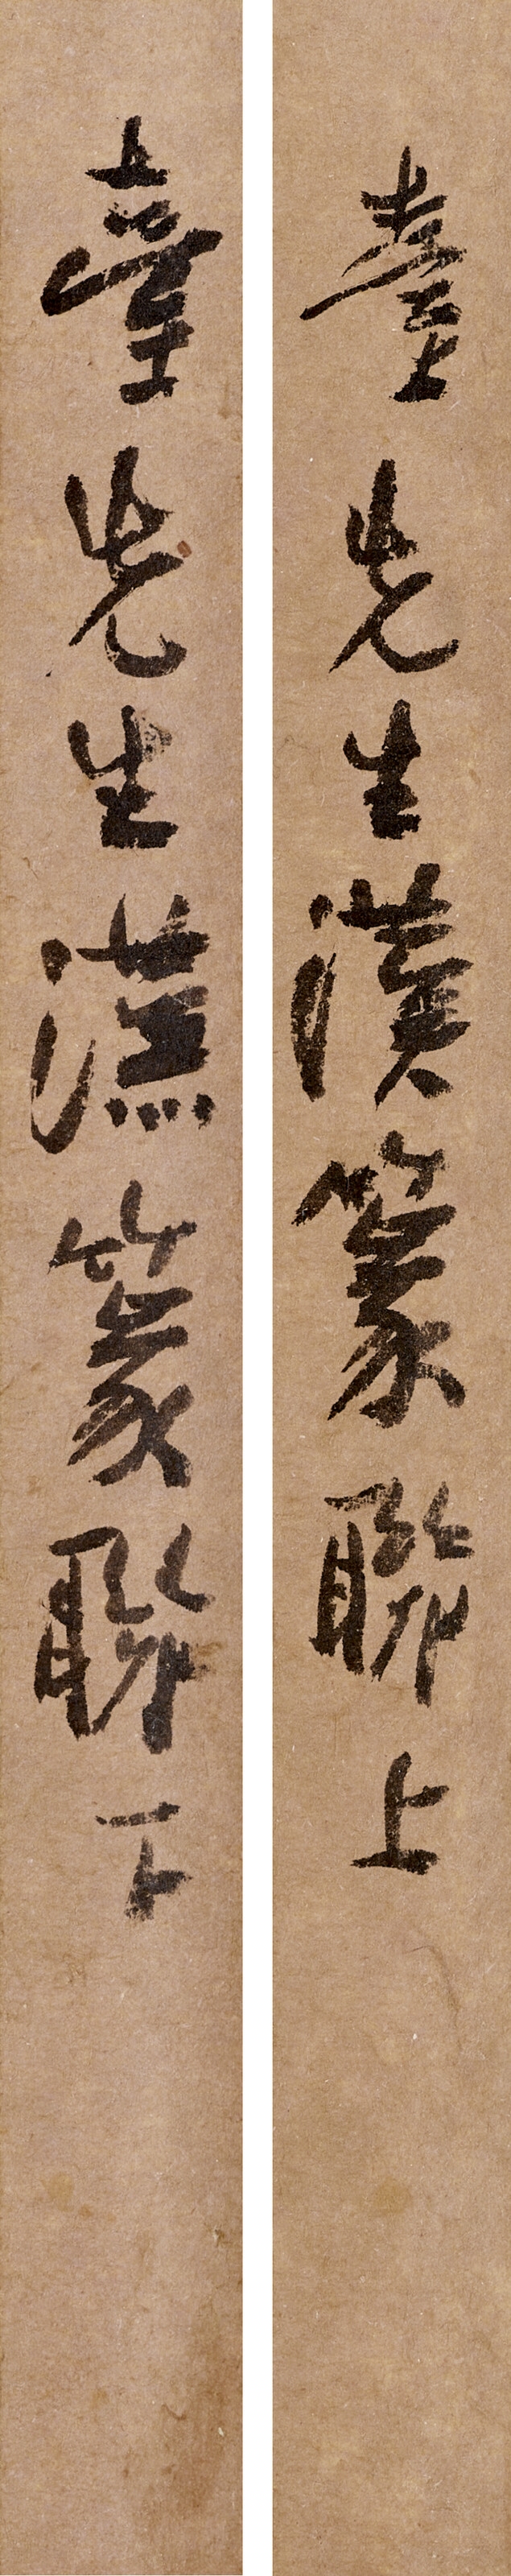 臺先生漢篆聯上
臺先生漢篆聯下